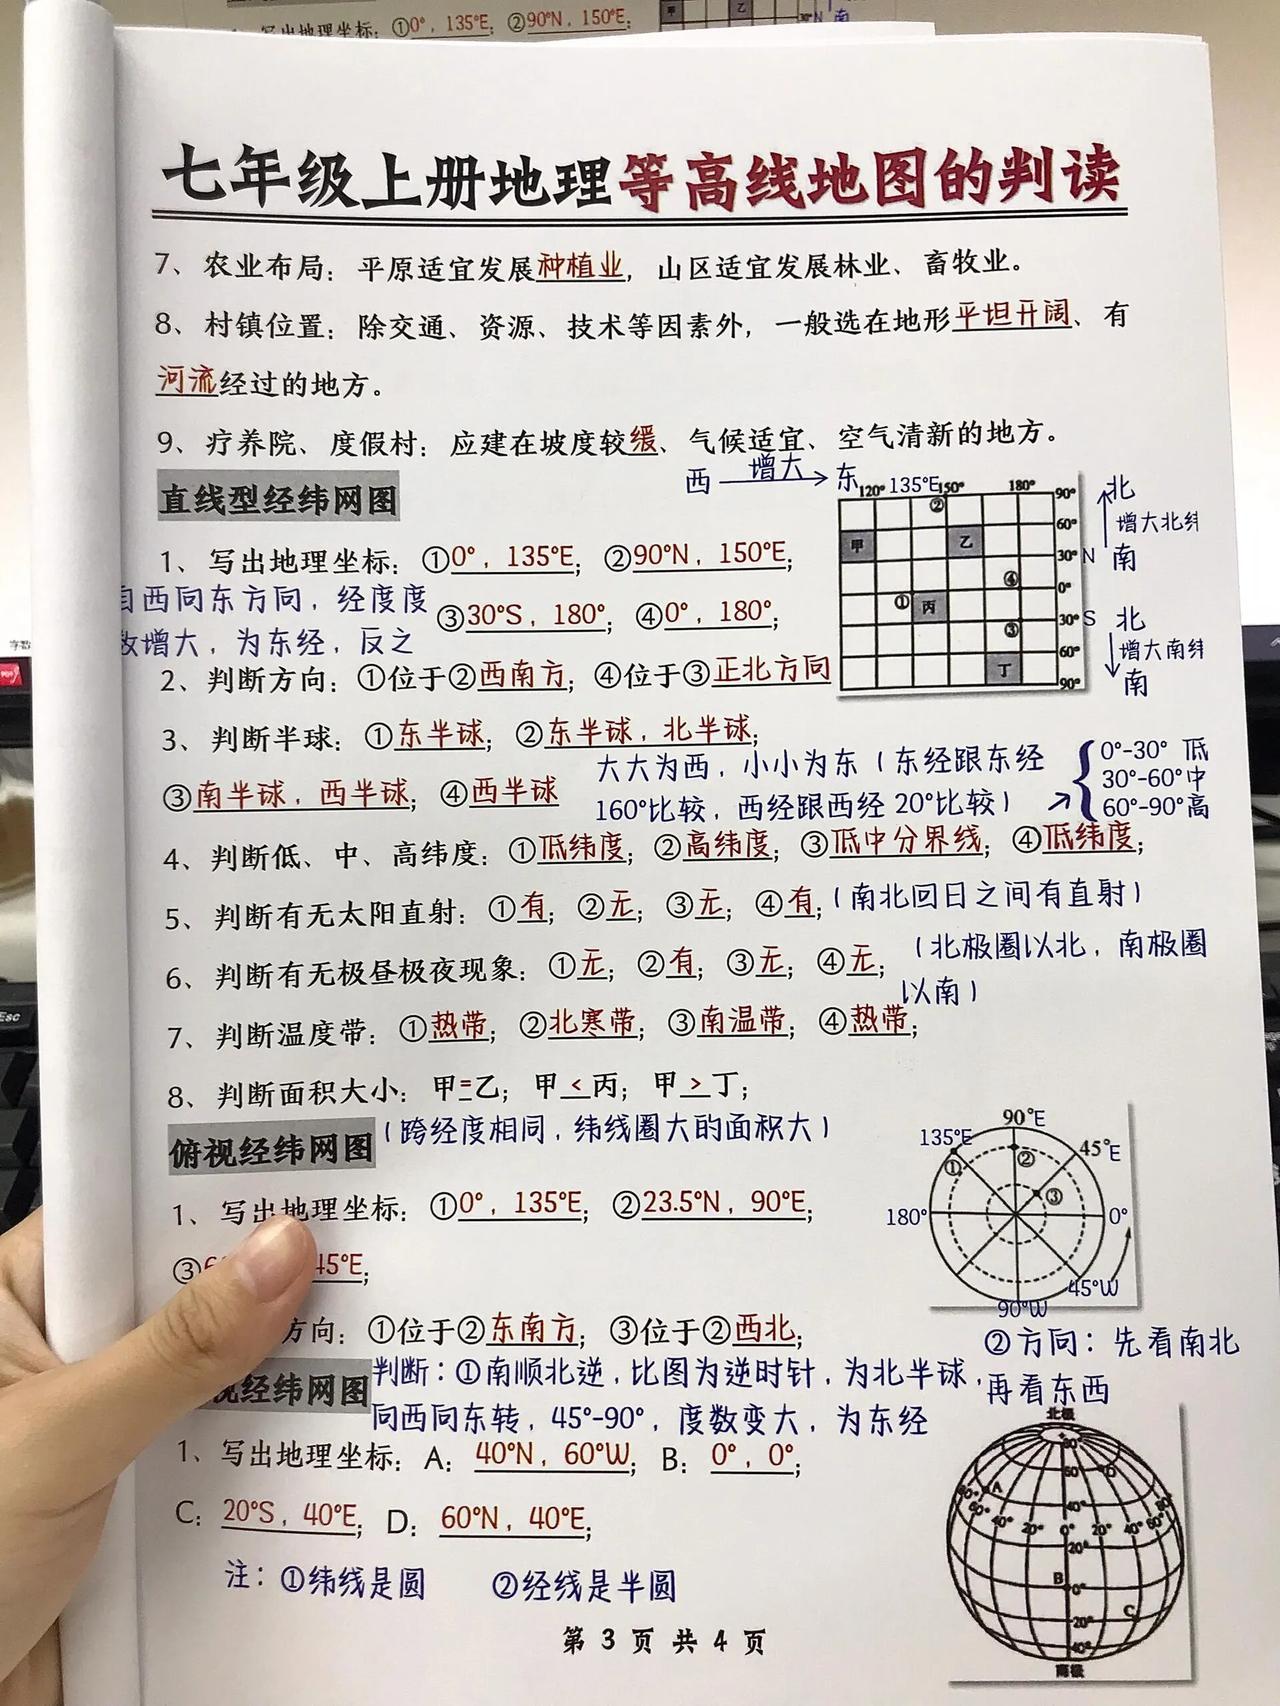 写出地理坐标：①0°，135°E；②90°N，150°E；
七年级上册地理等高线地图的判读
7、农业布局：平原适宜发展种植业，山区适宜发展林业、畜牧业。
8、村镇位置：除交通、资源、技术等因素外，一般选在地形平坦开阔、有
河流经过的地方。
9、疗养院、度假村：应建在坡度较缓、气候适宜、空气清新的地方。
西 增大 东
直线型经纬网图
120° 135°E 150° 180° 90°
60°
30° N
0°
30° S
60°
90°
甲 乙 丙 丁 ① ② ③ ④
北
增大北纬
南
北
增大南纬
南
1、写出地理坐标：①0°，135°E；②90°N，150°E；
自西向东方向，经度度
③30°S，180°；④0°，180°；
数增大，为东经，反之
2、判断方向：①位于②西南方；④位于③正北方向
3、判断半球：①东半球；②东半球，北半球；
③南半球，西半球；④西半球
大大为西，小小为东（东经跟东经
160°比较，西经跟西经 20°比较）
0°-30° 低
30°-60°中
60°-90°高
4、判断低、中、高纬度：①低纬度；②高纬度；③低中分界线；④低纬度；
5、判断有无太阳直射：①有；②无；③无；④有；（南北回日之间有直射）
6、判断有无极昼极夜现象：①无；②有；③无；④无；（北极圈以北，南极圈
以南）
7、判断温度带：①热带；②北寒带；③南温带；④热带；
8、判断面积大小：甲=乙；甲<丙；甲>丁；
俯视经纬网图（跨经度相同，纬线圈大的面积大）
90°E
135°E 45°E
① ② ③
180° 0°
45°W
90°W
1、写出地理坐标：①0°，135°E；②23.5°N，90°E；
③6 45°E；
方向：①位于②东南方；③位于②西北；
②方向：先看南北
再看东西
视经纬网图
判断：①南顺北逆，比图为逆时针，为北半球，
向西向东转，45°-90°，度数变大，为东经
1、写出地理坐标：A：40°N，60°W；B：0°，0°；
C：20°S，40°E；D：60°N，40°E；
注：①纬线是圆 ②经线是半圆
北极
80°
60° D
A
40°
80° 60° 40° 20° 0° 20° 40° 60° 80°
20°
B 0°
20° C
40°
南极
第 3 页 共 4 页
Esc